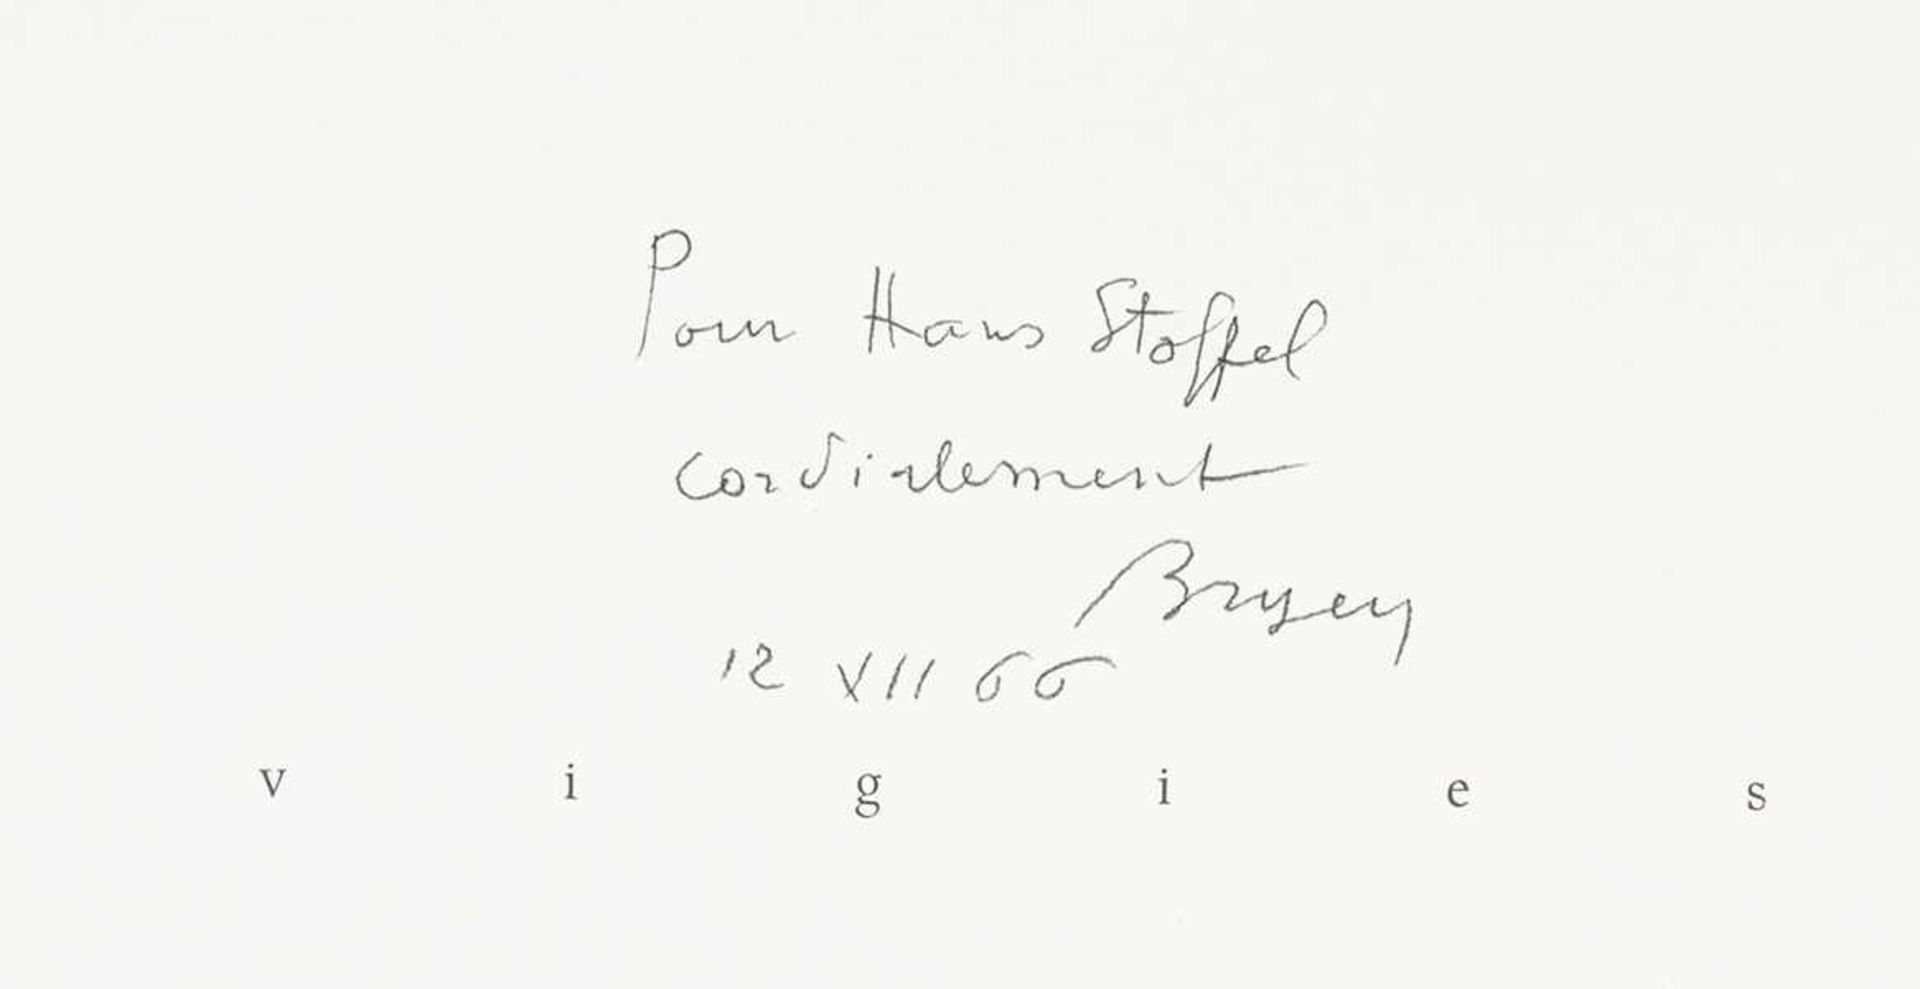 Pour Hans Stoffel
cordialement
Bryen
12 XII 66
v i g i e s